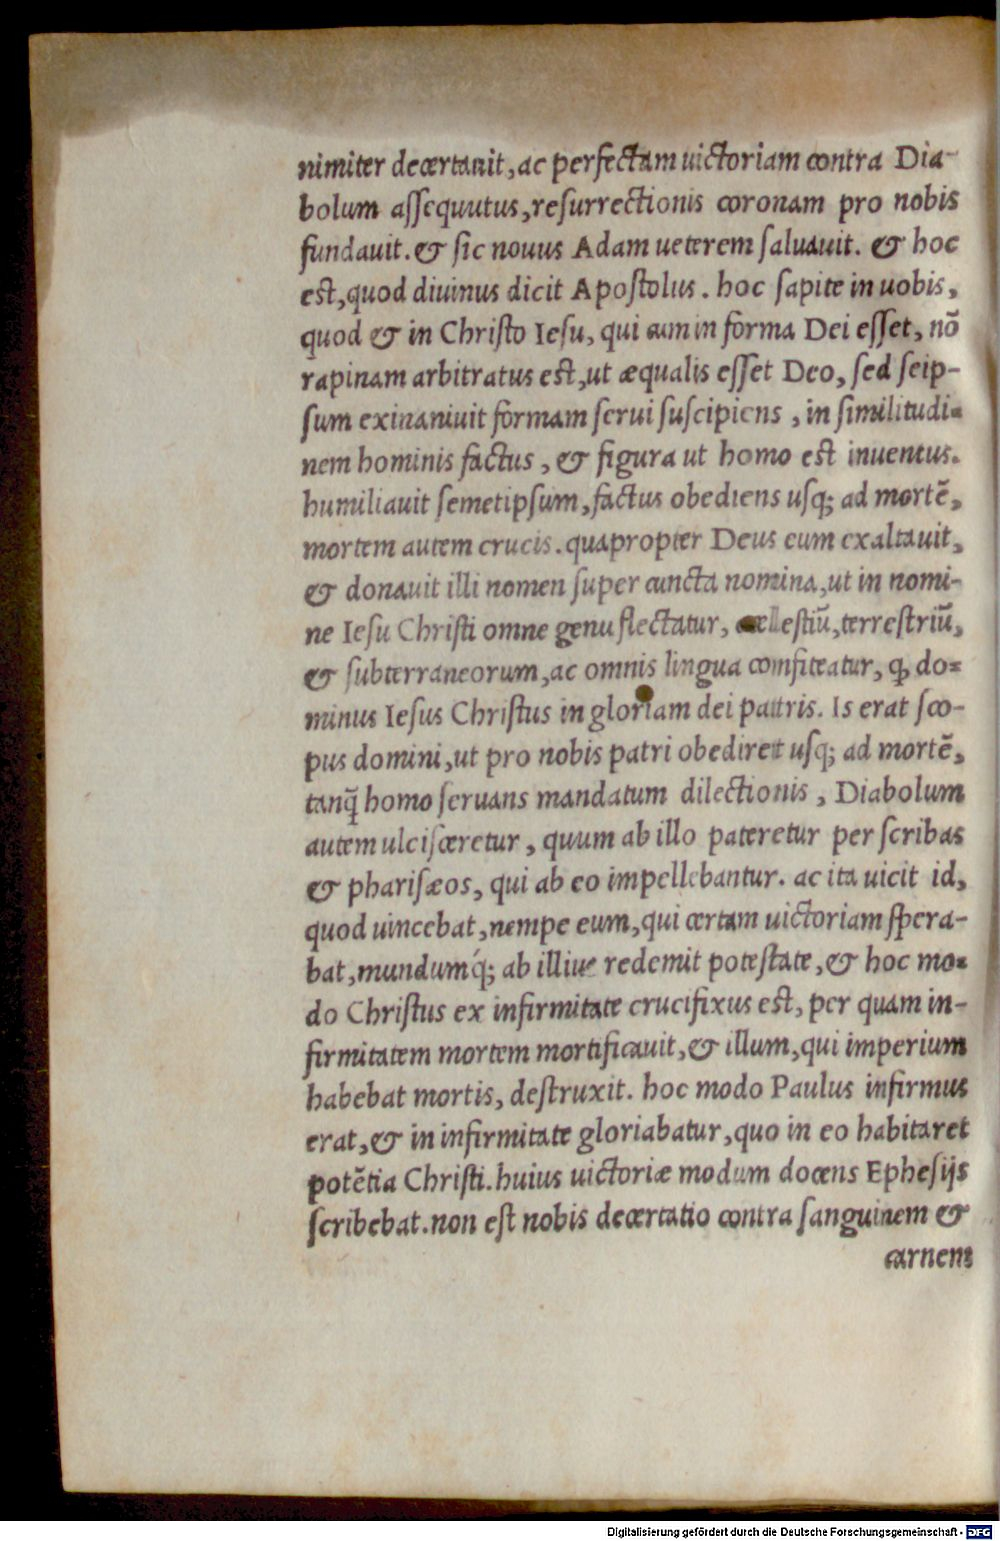 nimiter decertauit, ac perfectam uictoriam contra Dia-
bolum assequutus, resurrectionis coronam pro nobis
fundauit. & sic nouus Adam ueterem saluauit. & hoc
est, quod diuinus dicit Apostolus. hoc sapite in uobis,
quod & in Christo Iesu, qui cum in forma Dei esset, nō
rapinam arbitratus est, ut æqualis esset Deo, sed seip-
sum exinaniuit formam serui suscipiens, in similitudi-
nem hominis factus, & figura ut homo est inuentus.
humiliauit semetipsum, factus obediens usq; ad mortē,
mortem autem crucis. quapropter Deus eum exaltauit,
& donauit illi nomen super cuncta nomina, ut in nomi-
ne Iesu Christi omne genu flectatur, cœlestiū, terrestriū,
& subterraneorum, ac omnis lingua confiteatur, ꝙ do-
minus Iesus Christus in gloriam dei patris. Is erat sco-
pus domini, ut pro nobis patri obediret usq; ad mortē,
tanq̄ homo seruans mandatum dilectionis, Diabolum
autem ulcisceretur, quum ab illo pateretur per scribas
& pharisæos, qui ab eo impellebantur. ac ita uicit id,
quod uincebat, nempe eum, qui certam uictoriam spera-
bat, mundumq́; ab illius redemit potestate, & hoc mo-
do Christus ex infirmitate crucifixus est, per quam in-
firmitatem mortem mortificauit, & illum, qui imperium
habebat mortis, destruxit. hoc modo Paulus infirmus
erat, & in infirmitate gloriabatur, quo in eo habitaret
potētia Christi. huius uictoriæ modum docens Ephesijs
scribebat. non est nobis decertatio contra sanguinem &
carnem
Digitalisierung gefördert durch die Deutsche Forschungsgemeinschaft - DFG